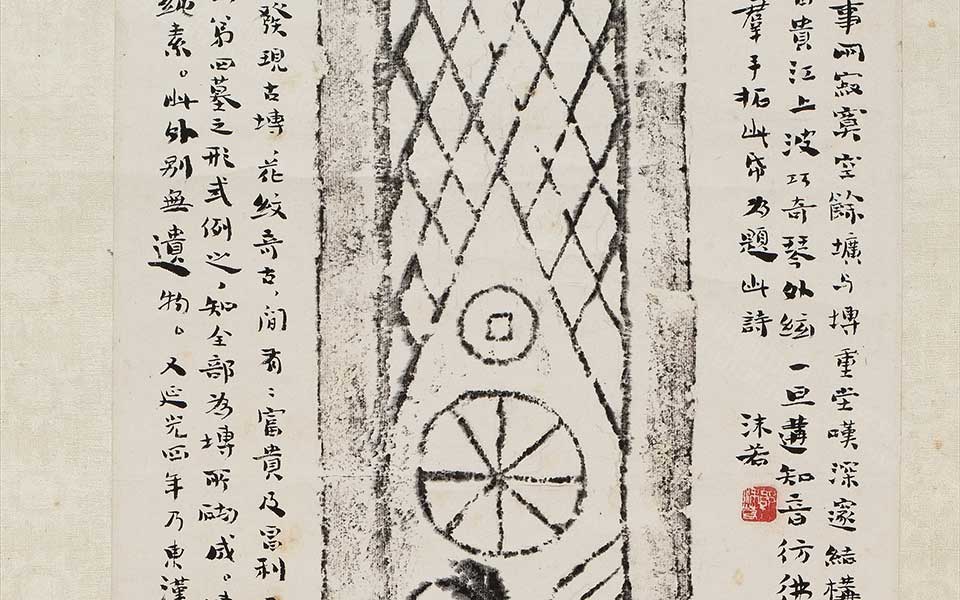 事兩寂寞空餘壙与塼重堂嘆深邃結構
富貴江上波巧奇琴外絃一旦遘知音仿佛
羣手拓此帋为題此詩
沫若
發現古塼，花紋奇古，間有：富貴及昌利
第四墓之形式例之，知全部为塼所砌成。
純素。此外别無遺物。又延光四年乃東漢